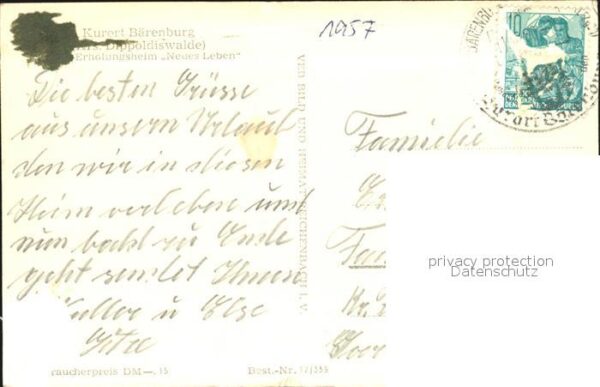 1957
Kurort Bärenburg
(Krs. Dippoldiswalde)
Erholungsheim „Neues Leben"
Die besten Grüsse
aus unsern Urlaub
den wir in diesen
Heim verleben und
nun bald zu Ende
geht sendet Ihnen
u Else
VEB BILD UND HEIMAT REICHENBACH I. V.
Familie
10
Kurort
privacy protection
Datenschutz
raucherpreis DM —,15
Best.-Nr.